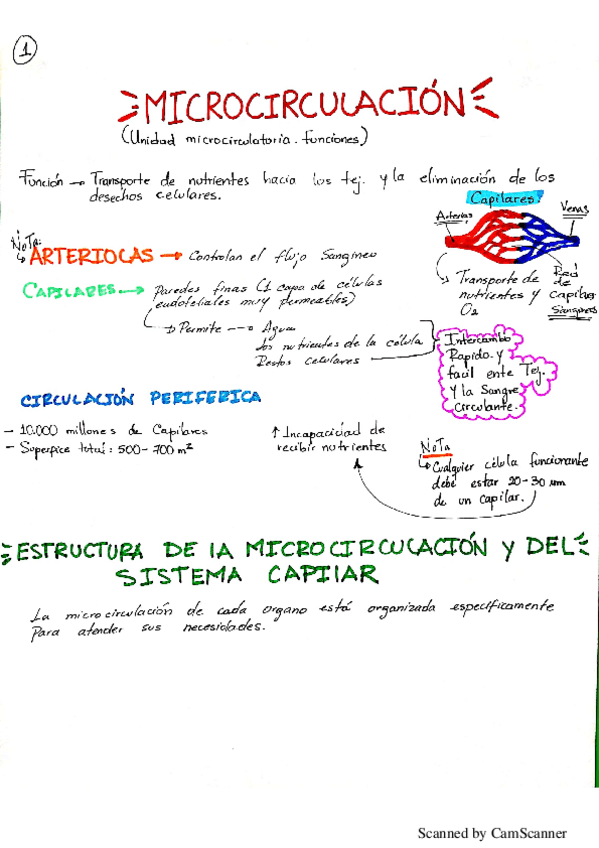 1
MICROCIRCULACIÓN
(Unidad microcirculatoria. funciones)
Función → Transporte de nutrientes hacia los tej. y la eliminación de los
desechos celulares.
Capilares
Arterias
Venas
Nota:
ARTERIOLAS → Controlan el flujo Sangineo
CAPILARES → Paredes finas (1 capa de células
endoteliales muy permeables)
Transporte de
nutrientes y
O2
Red
de
capilar
Sangineos
→ Permite → Agua
Los nutrientes de la célula
Restos celulares
Intercambio
Rapido y
facil ente Tej.
y la Sangre
Circulante.
CIRCULACIÓN PERIFERICA
- 10.000 millones de Capilares
- Superfice total: 500-700 m²
↑ Incapacidad de
recibir nutrientes
Nota
Cualquier célula funcionante
debe estar 20-30 um
de un capilar.
ESTRUCTURA DE LA MICROCIRCULACIÓN Y DEL
SISTEMA CAPILAR
La microcirculación de cada organo está organizada específicamente
Para atender sus necesidades.
Scanned by CamScanner